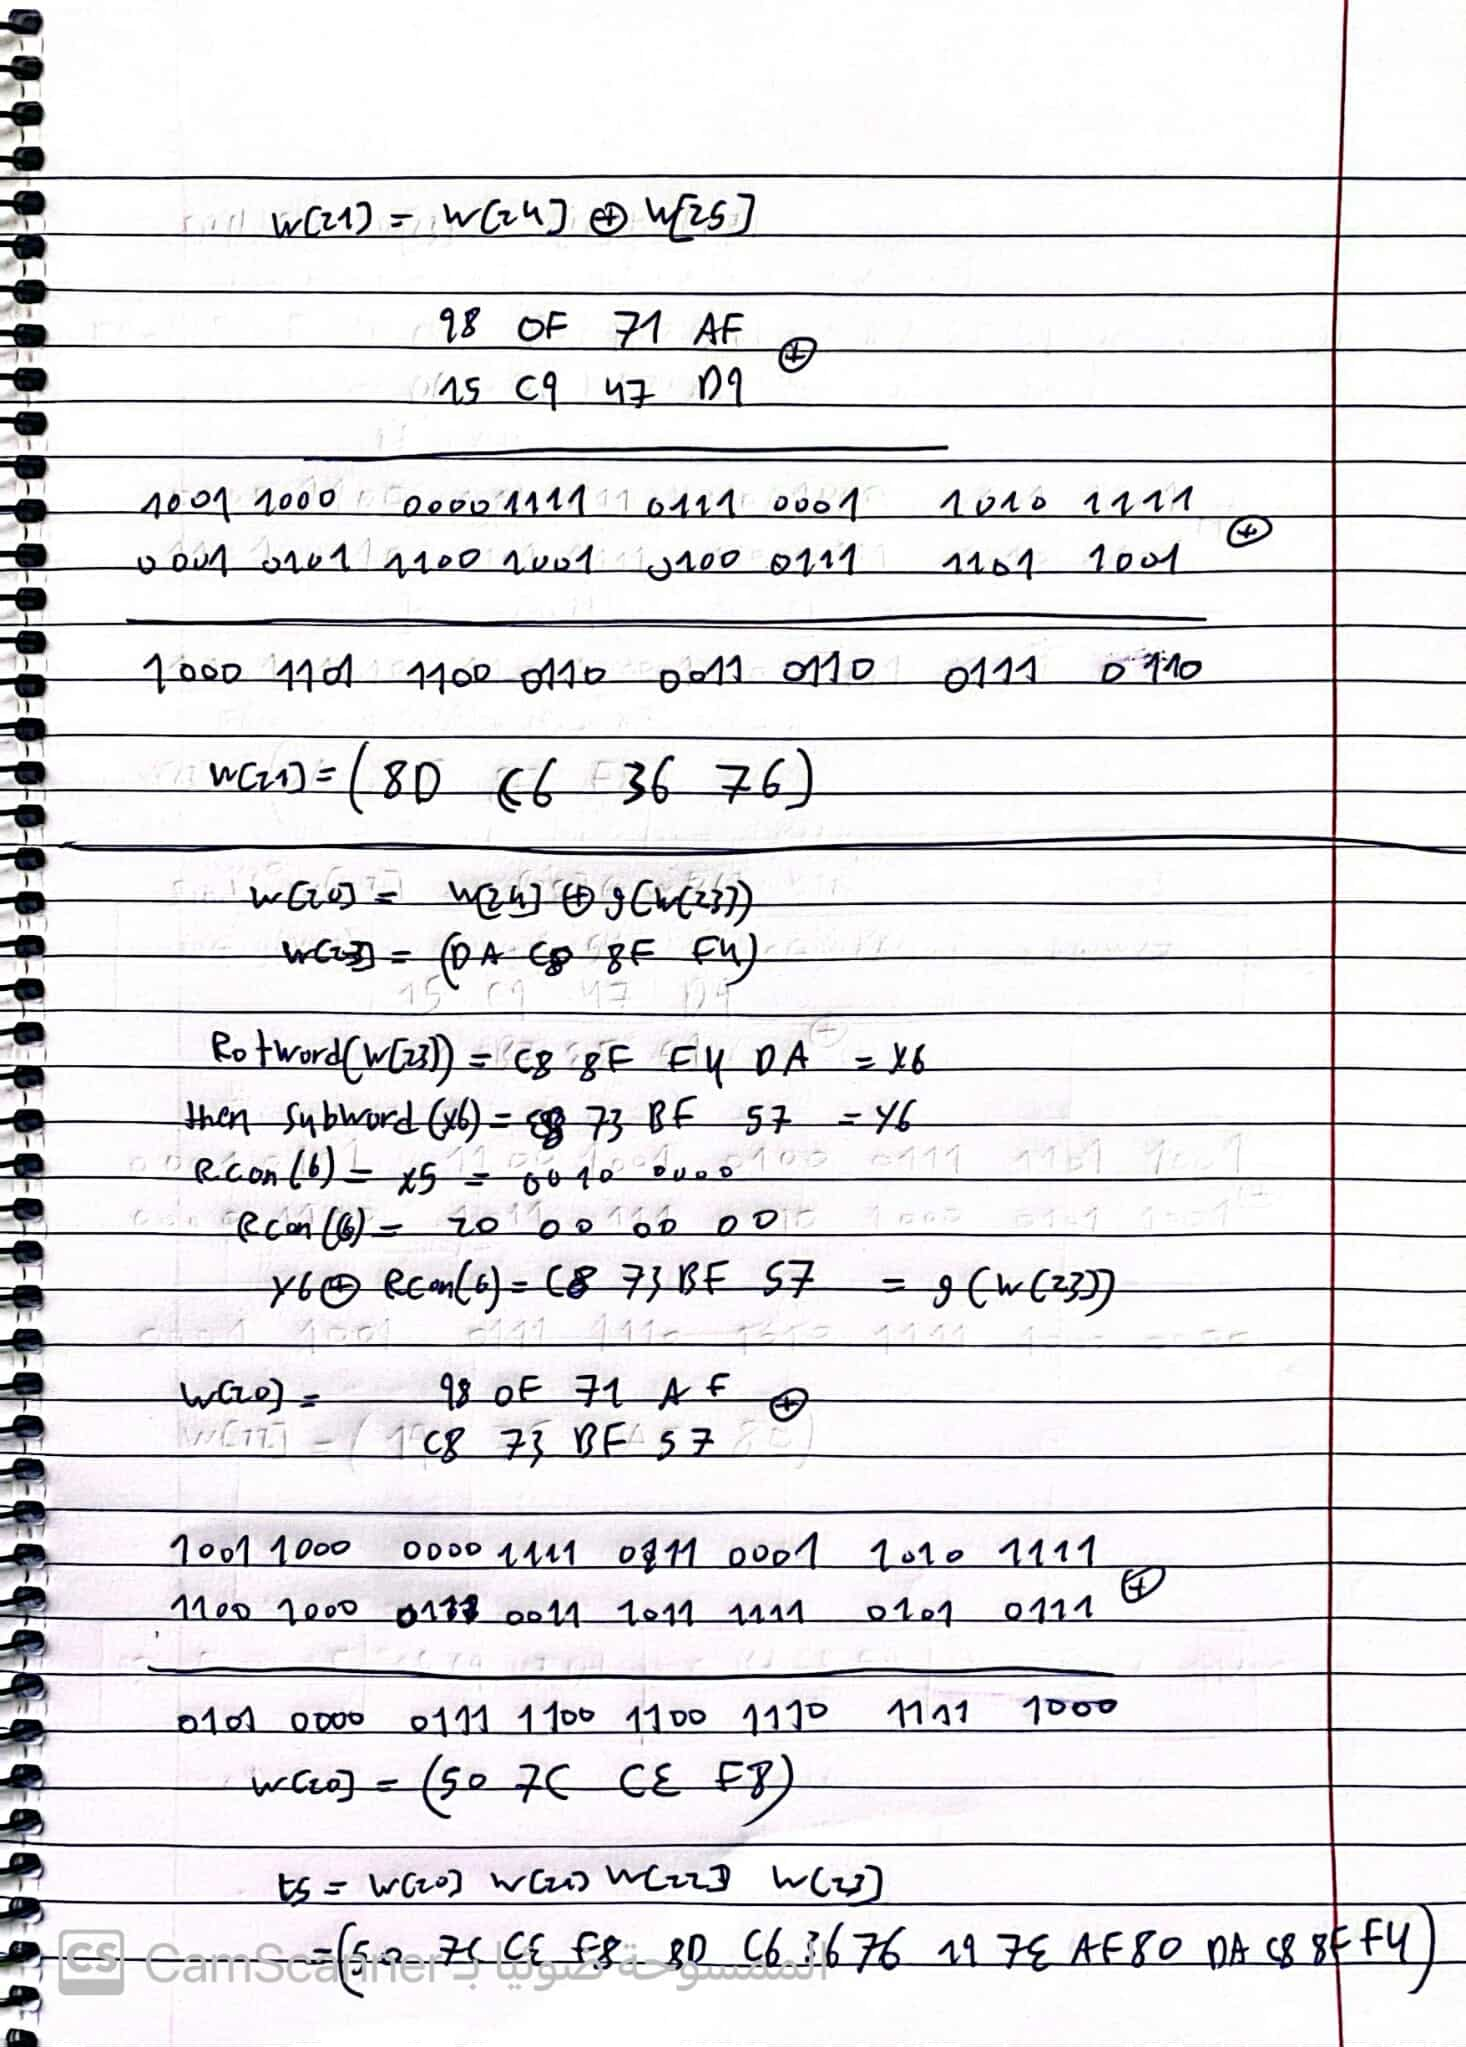 W[21] = W[24] ⊕ W[25]
98 0F 71 AF
⊕
15 C9 47 D9
1001 1000 0000 1111 0111 0001 1010 1111
⊕
0001 0101 1100 1001 0100 0111 1101 1001
1000 1101 1100 0110 0011 0110 0111 0110
W[21] = (8D C6 36 76)
W[20] = W[24] ⊕ g(W[23])
W[23] = (DA C8 8F F4)
Rotword(W[23]) = C8 8F F4 DA = X6
then Subword(X6) = E8 73 BF 57 = Y6
Rcon(6) = x5 = 0010 0000
Rcon(6) = 20 00 00 00
Y6 ⊕ Rcon(6) = C8 73 BF 57 = g(W[23])
W[20] = 98 0F 71 AF ⊕
C8 73 BF 57
1001 1000 0000 1111 0111 0001 1010 1111
⊕
1100 1000 0111 0011 1011 1111 0101 0111
0101 0000 0111 1100 1100 1110 1111 1000
W[20] = (50 7C CE F8)
t5 = W[20] W[21] W[22] W[23]
= (50 7C CE F8 8D C6 36 76 19 7E AF 80 DA C8 8F F4)
CS CamScanner الممسوحة ضوئيا بـ